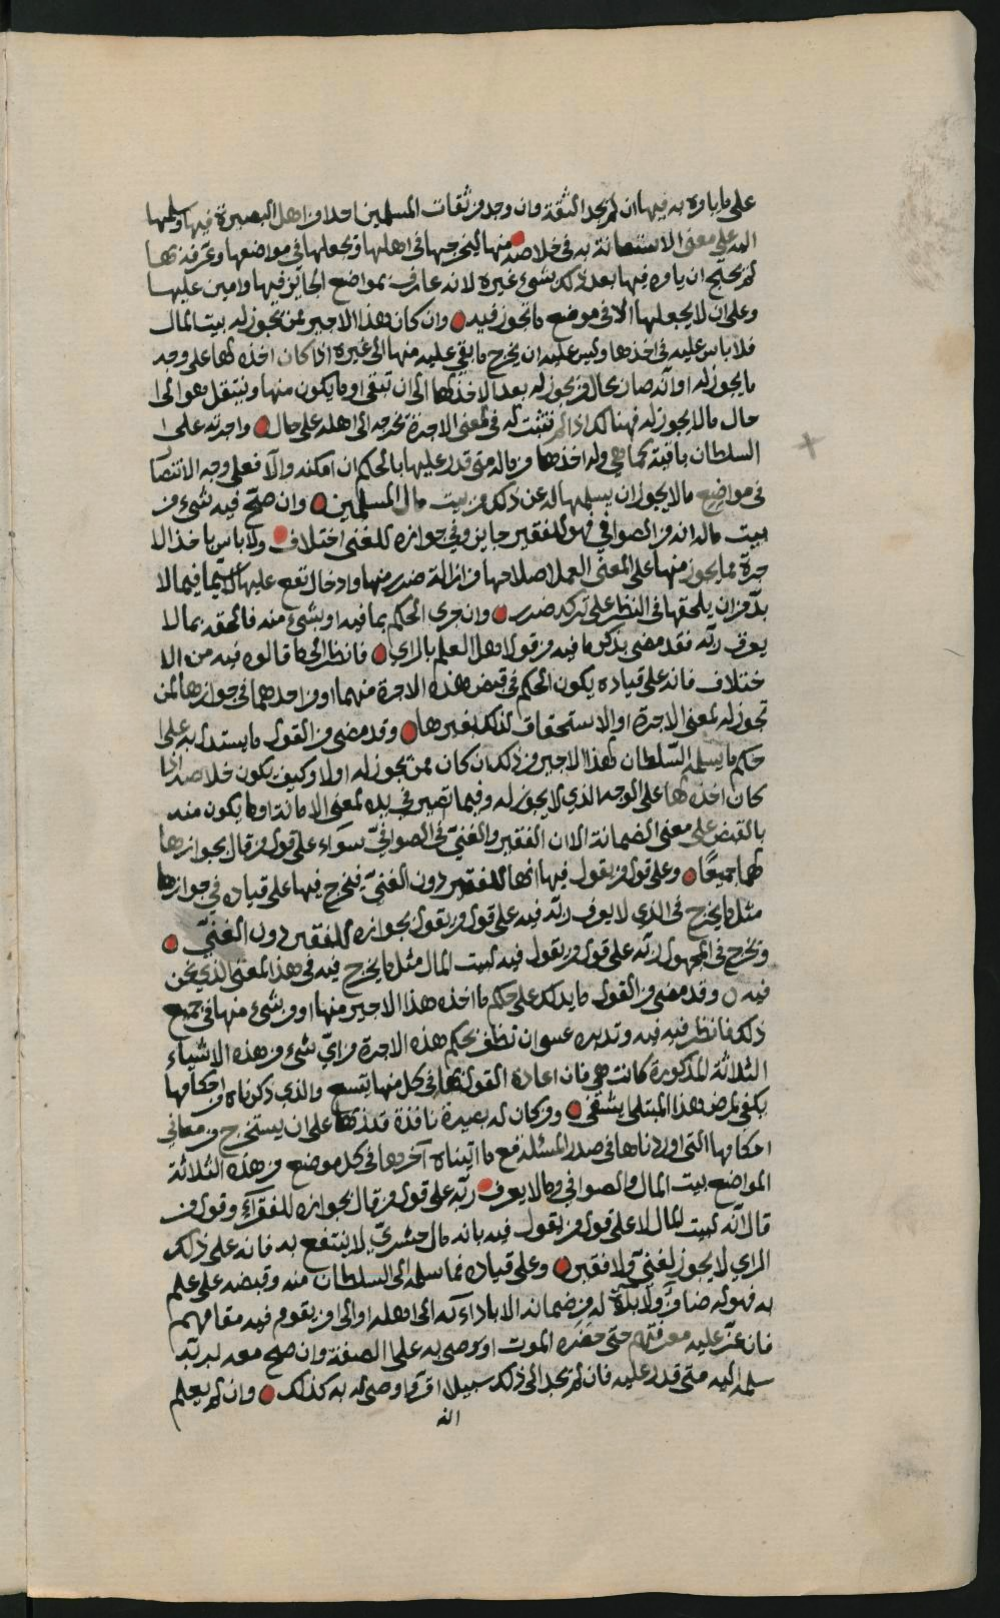 على ما ياوه به فيها ان لم يجد الثقة وان وجد من ثقات المسلمين احدا من اهل البصيرة فيها وسلمها
اليه على معنى الاستعانة به في خلاصه منها ليخرجها في اهلها ويجعلها في مواضعها وعرفه بها
لم يحتج ان ياوه فيها بعد ذلك بشيء غيره لانه عارف بمواضع الجايز فيها وامين عليها
وعلى ان لا يجعلها الا في موضع ما تجوز فيه وان كان هذا الاجير ممن تجوز له بيت المال
فلا باس عليه في اخذها وليس عليه ان يخرج ما بقي عليه منها الى غيره اذا كان اخذه لها على وجه
ما يجوز له او انه صار بحال من يجوز له بعد الاخذ لها الى ان تبقى او ما يكون منها وينتقل هو الى
حال ما لا يجوز له فهنالك اذا لم تثبت له في معنى الاجرة تخرجه الى اهله على حال واجرته على ا
السلطان باقية كما هي وله اخذها من ماله متى قدر عليها بالحكم ان امكنه والا فعلى وجه الانتصا
في مواضع ما لا يجوز ان يسلمها له عن ذلك من بيت مال المسلمين وان صح فيه شيء من
بيت ماله انه من الصوافي فهو للفقير جايز وفي جوازه للغني اختلاف ولا باس باخذ الا
جرة مما يجوز منها على المعنى العمل اصلاحها من ازالة ضرر منها وادخال نفع عليها لا سيما فيما لا
بد من ان يلحقها في النظر على تركه ضرر وان جرى الحكم بما فيه او بشيء منه فالحقه بما لا
يعرف ربه فقد مضى بذكر ما فيه من قول اهل العلم بالراي فانظر الى ما قالوه فيه من الا
ختلاف فانه على قياده يكون الحكم في قبض هذه الاجرة منهما او من احدهما في جوازها لمن
تجوز له لمعنى الاجرة او الاستحقاق لذلك بغيرها وقد مضى من القول ما يستدل به على ا
حكم ما يسلمه السلطان لهذا الاجير من ذلك ان كان ممن تجوز له او لا وكيف يكون خلاصه اذا
كان اخذه لها على الوجه الذي لا يجوز له وفيما تصير في يده لمعنى الامانة او ما يكون منه
بالقبض على معنى الضمانة الا ان الفقير والغني في الصوافي سواء على قول من قال بجوازها
لهما جميعا وعلى قول من يقول فيها انها للفقير دون الغني فيخرج فيها على قياده في جوازها
مثل ما يخرج في الذي لا يعرف ربه فيه على قول من يقول بجوازه للفقير دون الغني
وتخرج في المجهول ربه على قول من يقول فيه لبيت المال مثل ما يخرج فيه في هذا المعنى الذي نحن
فيه وقد مضى من القول ما يدلك على حكم ما اخذه هذا الاجير منها او من شيء منها في جميع
ذلك فانظر فيه فيه وتدبره عسى ان تظفر بحكم هذه الاجرة من اي شيء من هذه الاشياء
الثلاثة المذكورة كانت هي فان اعادة القول بها في كل منها يتسع والذي ذكرناه من احكامها
يكفي لمرض هذا المبتلى يشفي ومن كان له بصيرة نافذة قد لها على ان يستخرج من معاني
احكامها التي اوردناها في صدر المسئلة مع ما اتيناه آخرها في كل موضع من هذه الثلاثة
المواضع بيت المال والصوافي وما لا يعرف ربه على قول من قال بجوازه للفقراء وقول من
قال انه لبيت المال لا على قول من يقول فيه بانه مال حشري لا ينتفع به فانه على ذلك
الراي لا يجوز لغني ولا فقير وعلى قياده فما سلمه الى السلطان منه وقبضه على علم
به فهو له ضامن ولا بد له من ضمانه الا باداءه الى اهله او الى من يقوم فيه مقامهم
فان عز عليه معرفتهم حتى حضره الموت اوصى به على الصفة وان صح معه لربه
سلمه اليه متى قدر عليه فان لم يجد الى ذلك سبيلا اقر واوصى له به كذلك وان لم يعلم
انه